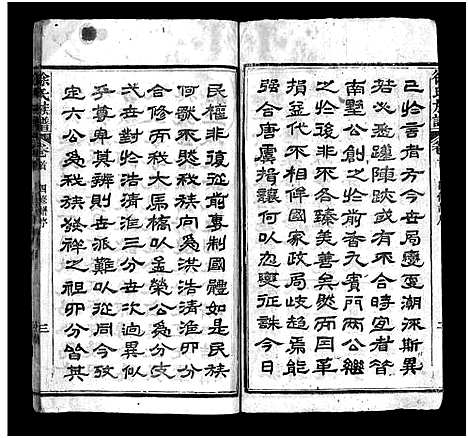 已恰言者方今世局憂更潮流斯異
若必蓋蹕陳跌或有不合時宜爰以
南墅公創之於前香九賓門兩公繼
之於後非不各臻美善矣然而因革
損益代不相侔國家政局歧趨能
強合唐虞揖讓何以忽變征誅今日
民權非復從前專制國體如是民族
何獸不然我族向為洪浩清淮卯分
合修而我大馬橋以孟榮公為分
弌在對於浩清淮三分在次適異似
乎尊卑其辨則在派難以從同今攷
定六公為我族發祥之祖卯分皆其
徐氏族譜
卷首
四修譜序
三